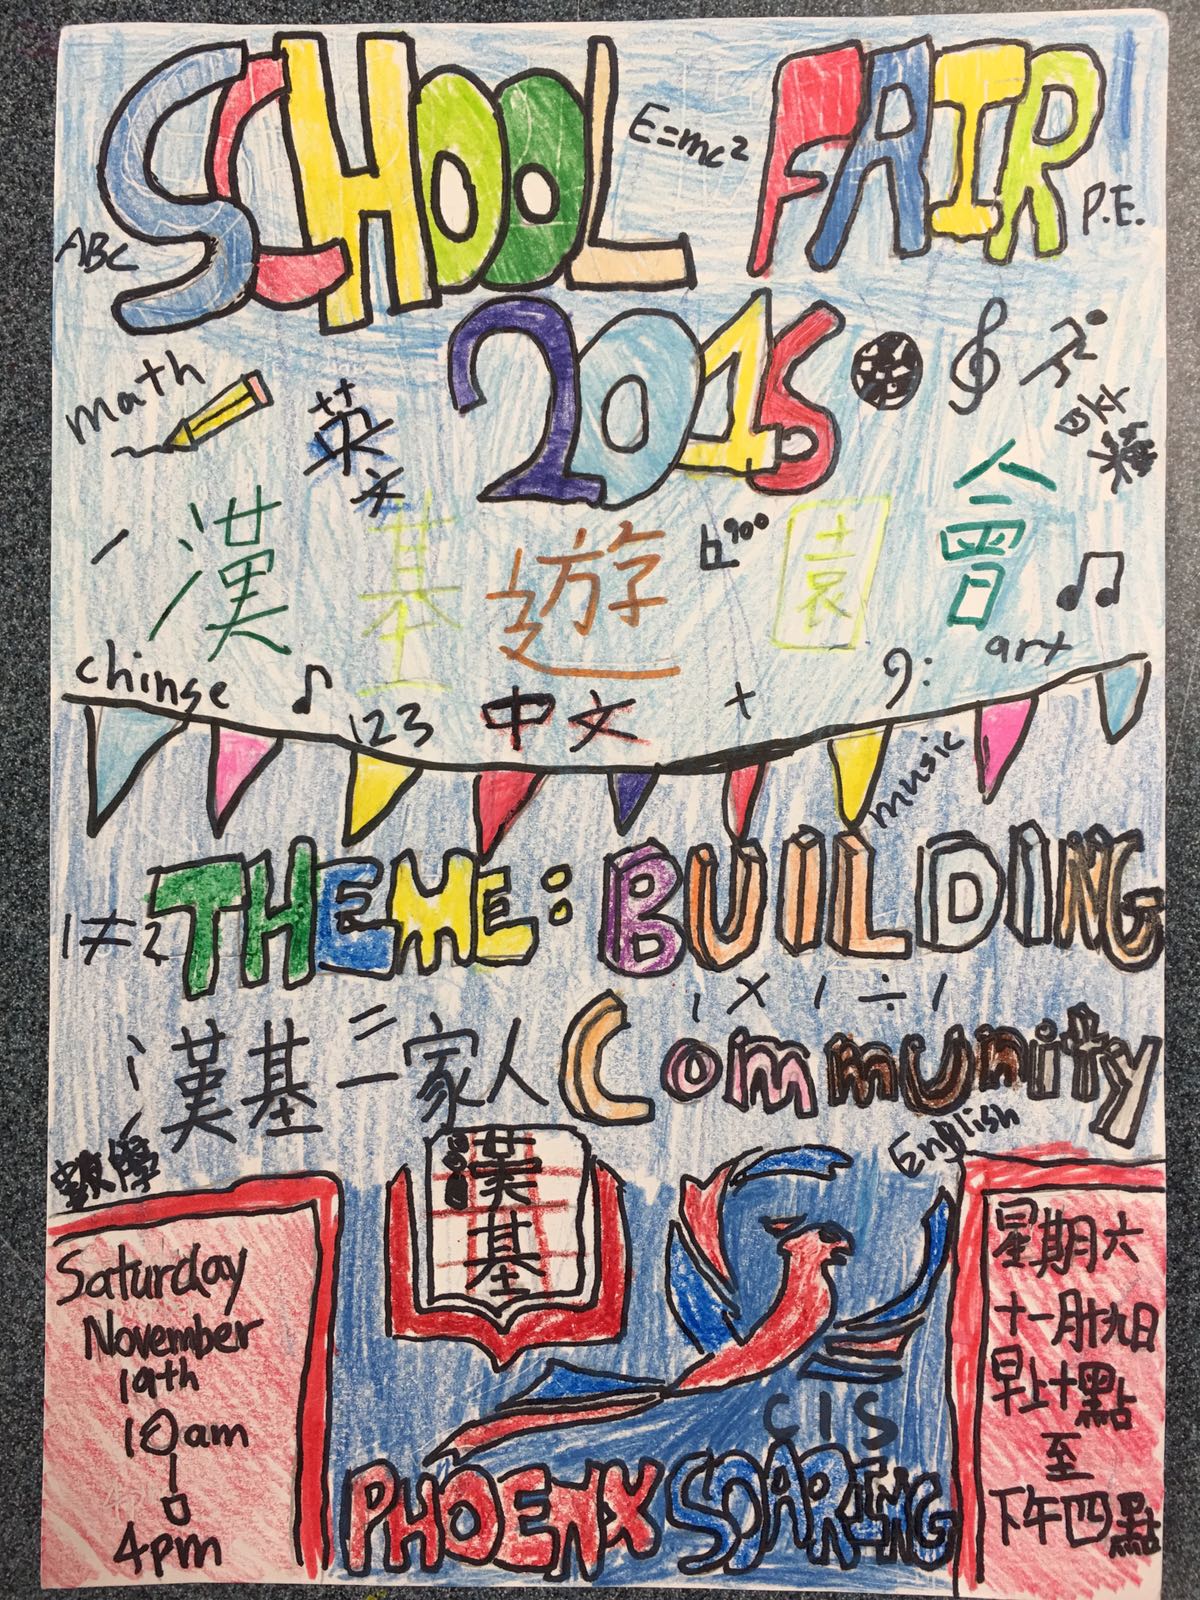 SCHOOL FAIR
E=mc²
ABC
P.E.
2016
math
英文
漢基遊園會
90°
chinse
123
中文
+
art
music
THEME: BUILDING
1≠2
1×1÷1
漢基二家人 Community
English
數學
漢基
Saturday
November
19th
10am
|
4pm
CIS
PHOENX SOARING
星期六
十一月十九日
早上十點
至
下午四點